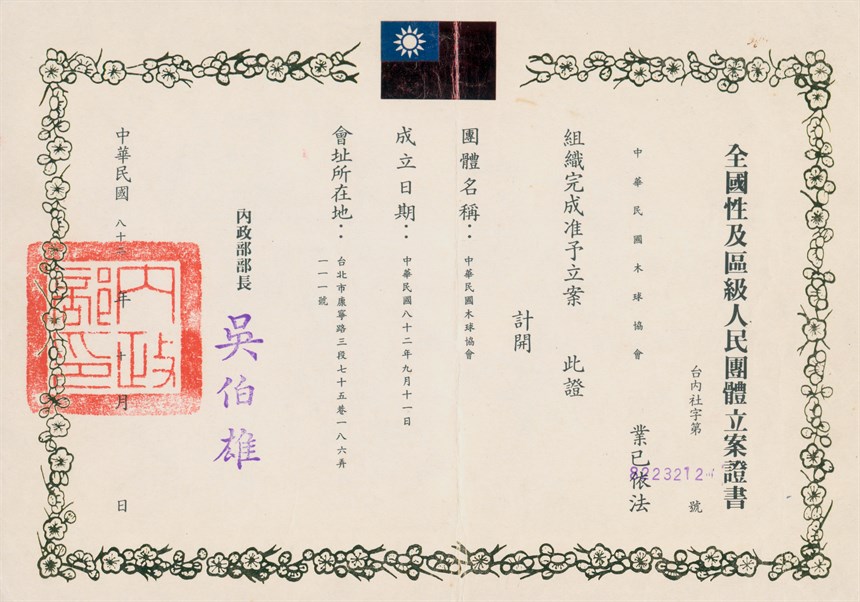 全國性及區級人民團體立案證書
台內社字第
號
8223212
中華民國木球協會
業已依法
組織完成准予立案 此證
計開
團體名稱：中華民國木球協會
成立日期：中華民國八十二年九月十一日
會址所在地：台北市康寧路三段七十五巷一八六弄
一一一號
內政部部長
吳伯雄
中華民國八十二年十月 日
內政部印